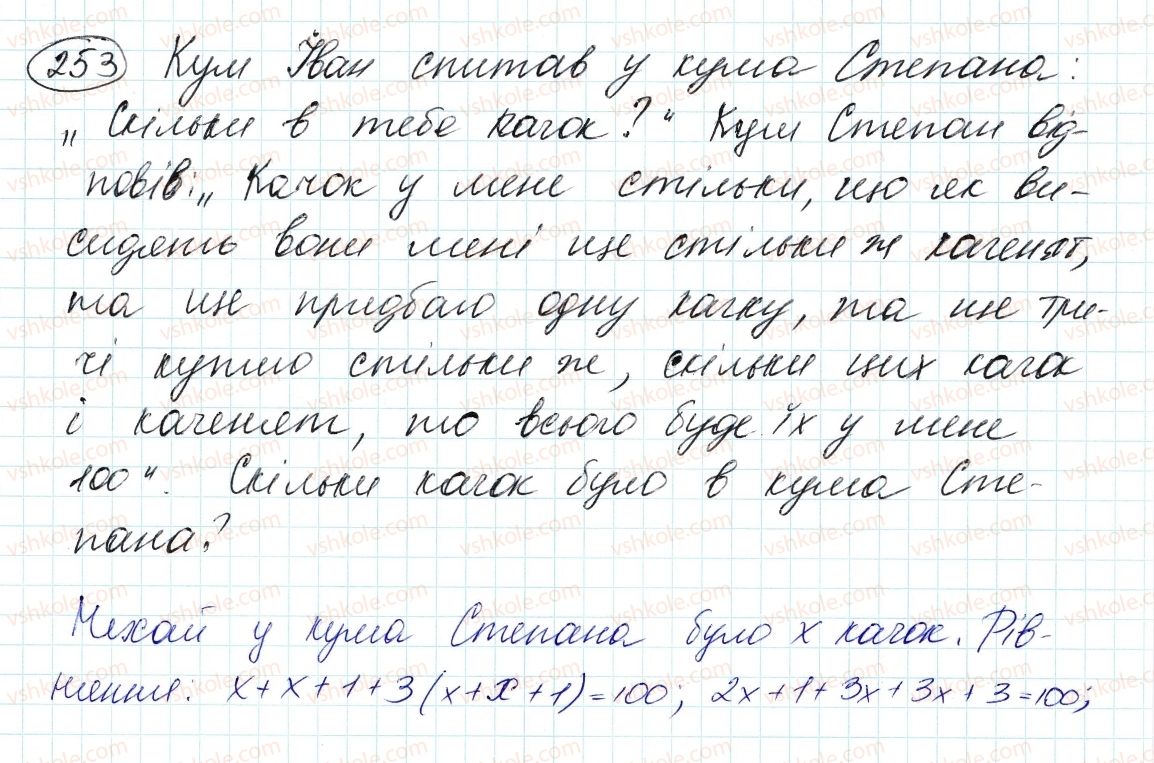 253 Кум Іван спитав у кума Степана:
„Скільки в тебе качок?“ Кум Степан від-
повів: „Качок у мене стільки, що як ви-
сидять вони мені ще стільки ж каченят,
та ще придбаю одну качку, та ще три-
чі куплю стільки ж, скільки цих качок
і каченят, то всього буде їх у мене
100“. Скільки качок було в кума Сте-
пана?
Нехай у кума Степана було x качок. Рів-
няння: x+x+1+3(x+x+1)=100; 2x+1+3x+3x+3=100;